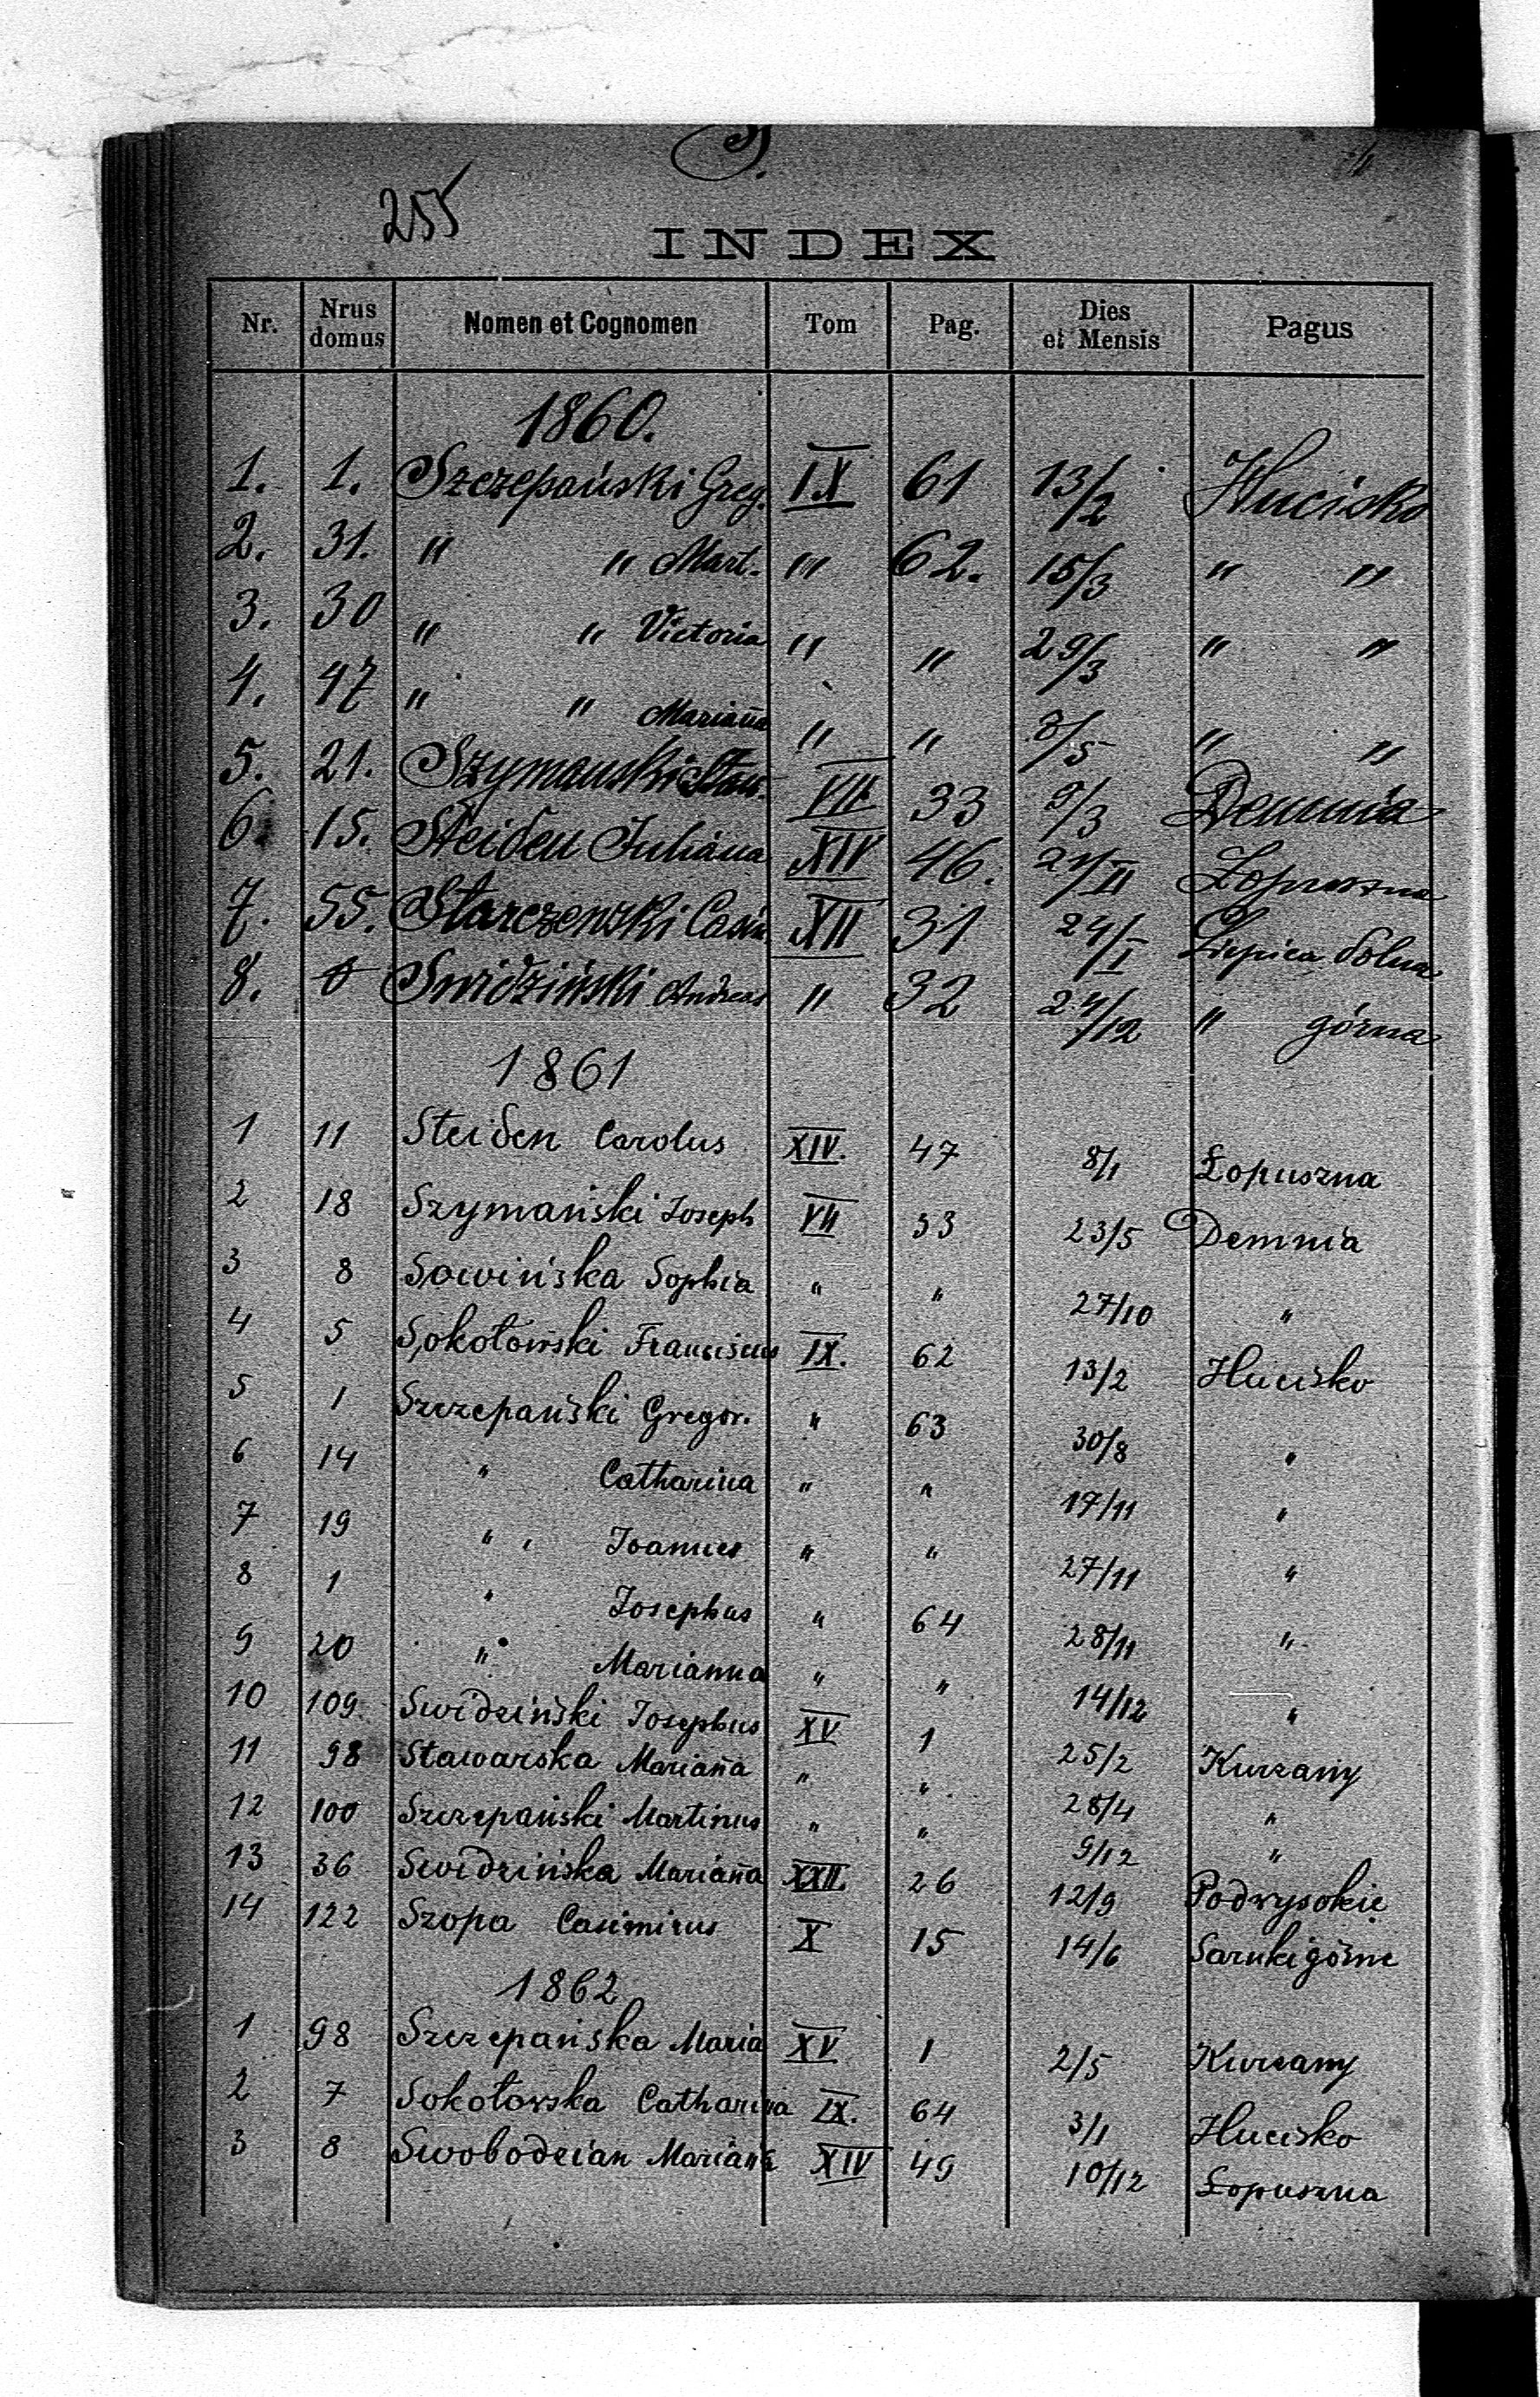 S.
255
INDEX
Nr. Nrus domus Nomen et Cognomen Tom Pag. Dies et Mensis Pagus
1860.
1. 1. Szczepański Greg. IX 61 13/2 Hucisko
2. 31. " " Mart. " 62. 15/3 " "
3. 30 " " Victoria " " 29/3 " "
4. 47 " " Marian̄a " " 7/5 " "
5. 21. Szymański Stan. VII 33 9/3 Demnia
6 15. Steiden Juliana XIV 46. 21/II Łopuszna
7. 55. Starczewski Casim XII 31 24/I Lipica dolna
8. 0 Swidziński Andreas " 32 24/12 " górna
1861
1 11 Steiden Carolus XIV. 47 8/1 Łopuszna
2 18 Szymański Joseph VII 33 23/5 Demnia
3 8 Sowińska Sophia " " 27/10 "
4 5 Sokołowski Franciscus IX. 62 13/2 Hucisko
5 1 Szczepański Gregor. " 63 30/8 "
6 14 " Catharina " " 17/11 "
7 19 " " Joannes " " 27/11 "
8 1 " Josephus " 64 28/11 "
9 20 " Marianna " " 14/12 "
10 109 Swidziński Josephus XV 1 25/2 Kurzany
11 98 Stawarska Marian̄a " " 28/4 "
12 100 Szczepański Martinus " " 9/12 "
13 36 Swidzińska Marian̄a XXII 26 12/9 Podwysokie
14 122 Szopa Casimirus X 15 14/6 Sarnki górne
1862
1 98 Szczepańska Maria XV 1 2/5 Kurzany
2 7 Sokołowska Catharina IX. 64 3/1 Hucisko
3 8 Swobodzian Marian̄a XIV 49 10/12 Łopuszna